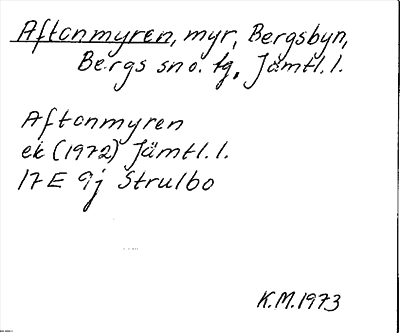 Aftonmyren, myr, Bergsbyn,
Bergs sn o. tg, Jämtl. l.
Aftonmyren
ek (1972) Jämtl. l.
17E 9j Strulbo
K.M. 1973